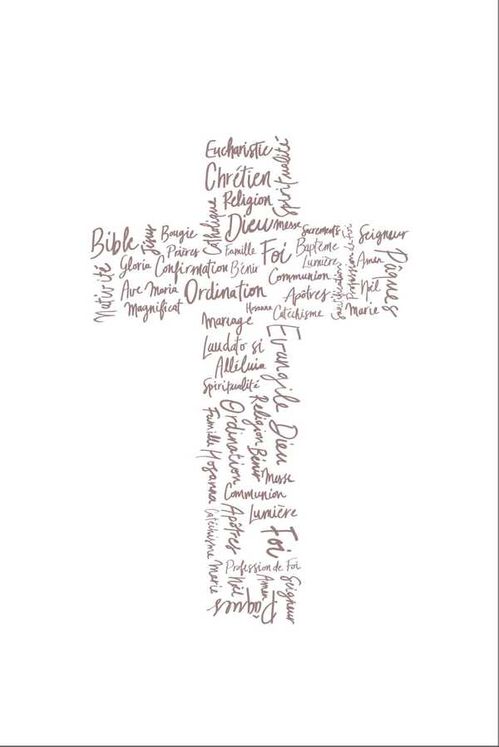 Eucharistie
Spiritualité
Chrétien
Religion
Catholique
Dieu
Messe
Sacrements
Seigneur
Bible
Jésus
Bougie
Prières
Famille
Foi
Baptême
Lumière
Amen
Pâques
Nativité
Gloria
Confirmation
Bénir
Communion
Profession de foi
Ave Maria
Ordination
Apôtres
Nöl
Magnificat
Hosanna
Catéchisme
Marie
Mariage
Evangile
Laudato si
Alléluia
Spiritualité
Famille
Ordination
Religion
Dieu
Bénir
Hosanna
Messe
Communion
Catéchisme
Apôtres
Lumière
Foi
Marie
Profession de Foi
Nöl
Amen
Seigneur
Pâques